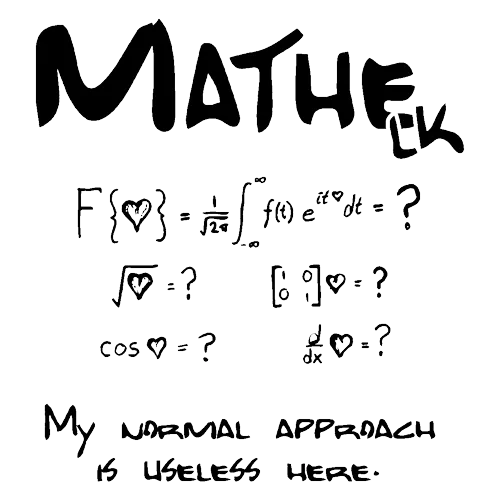 MATHECK
F{♥} = 1/√2π ∫_-∞^∞ f(t) e^it♥ dt = ?
√♥ = ? [1 0; 0 1]♥ = ?
cos ♥ = ? d/dx ♥ = ?
My NORMAL APPROACH
IS USELESS HERE.